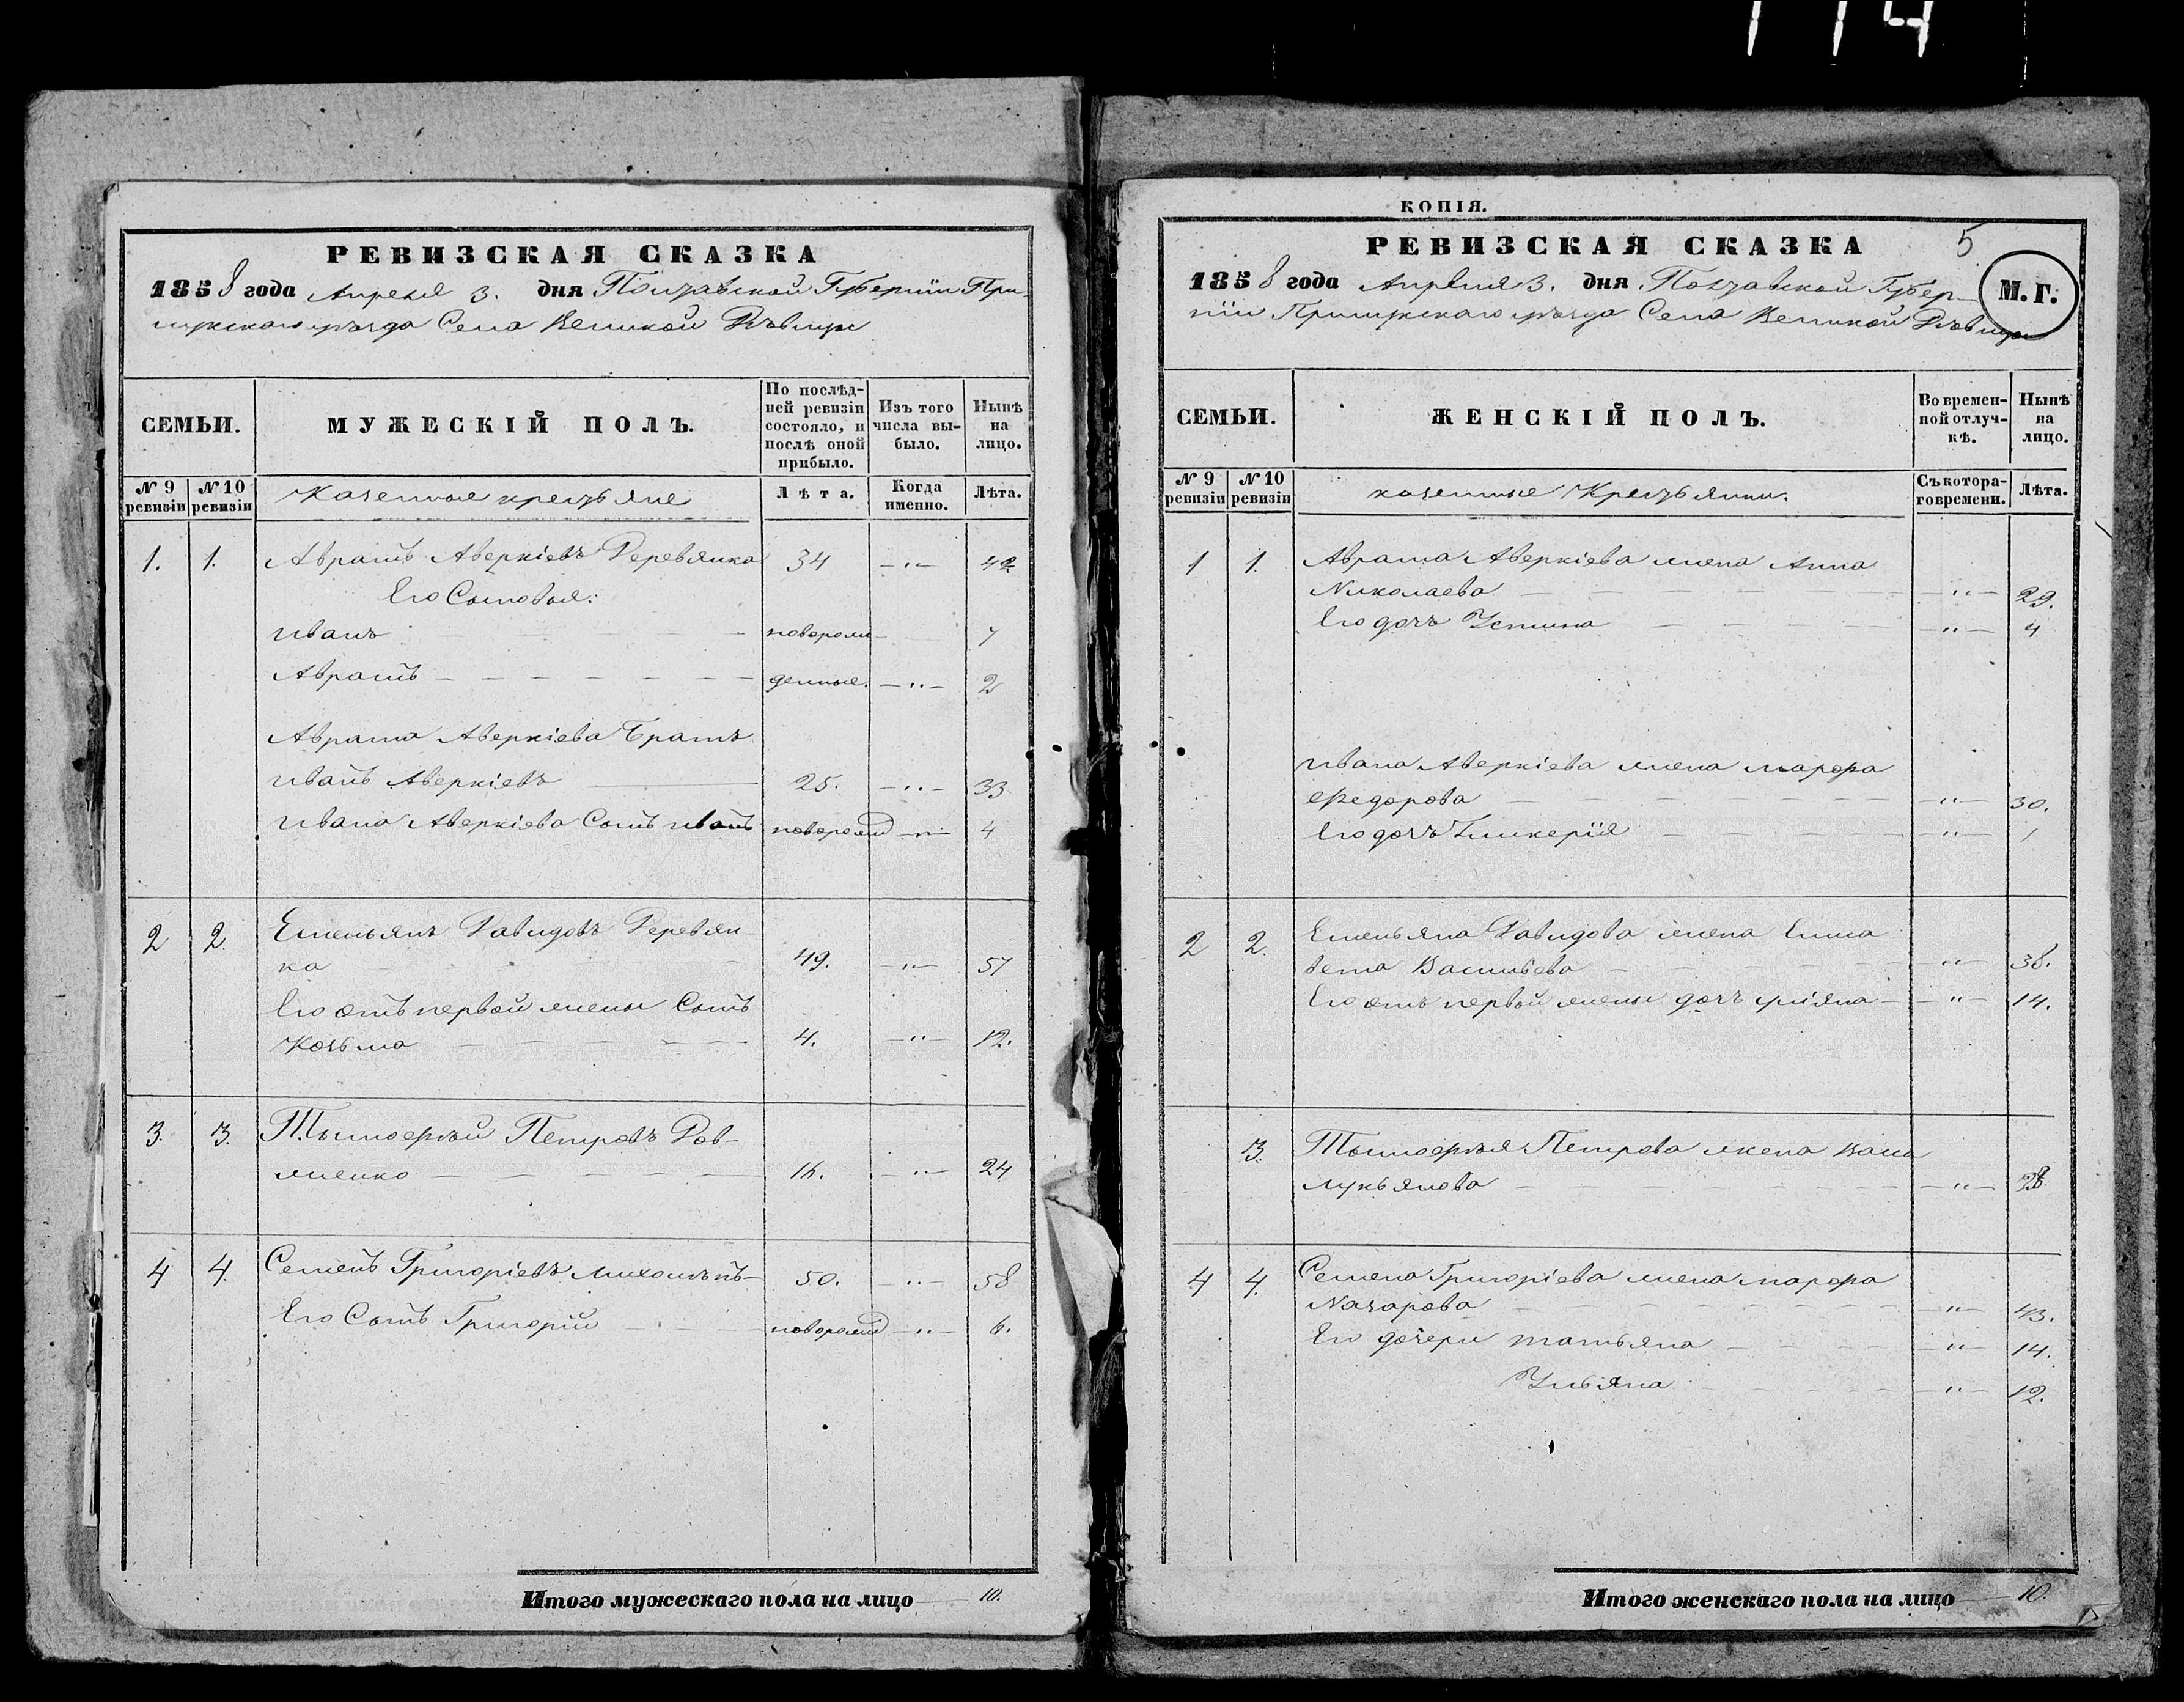 114
РЕВИЗСКАЯ СКАЗКА
1858 года Апреля 3. дня Полтавской Губернии При-
лукского уѣзда Села Великой Дѣвицы
СЕМЬИ.
МУЖЕСКІЙ ПОЛЪ.
По послѣд-
ней ревизіи
состояло, и
послѣ оной
прибыло.
Изъ того
числа вы-
было.
Нынѣ
на
лицо.
№ 9
ревизіи
№ 10
ревизіи
Казенные крестьяне
Лѣта.
Когда
именно.
Лѣта.
1. 1. Аврамъ Аверкіевъ Деревянка 34 — " — 42
Его Сыновья:
Иванъ новорож- 7
Аврамъ денные. — " — 2
Аврама Аверкіева Братъ
Иванъ Аверкіевъ 25. — " — 33
Ивана Аверкіева Сынъ Иванъ новорожд — " — 4
2 2. Емельянъ Давидовъ Деревян-
ка 49. — " — 57
Его отъ первой жены Сынъ
Козьма 4. — " — 12.
3. 3. Тымоѳѣй Петровъ Дев-
яшенко 16. — " — 24
4 4. Семенъ Григоріевъ 50. — " — 58
Его Сынъ Григорій новорожд — " — 6.
Итого мужескаго пола на лицо 10.
КОПІЯ.
5
РЕВИЗСКАЯ СКАЗКА
М. Г.
1858 года Апреля 3. дня Полтавской Губер-
ніи Прилукского уѣзда Села Великой Дѣвицы
СЕМЬИ.
ЖЕНСКІЙ ПОЛЪ.
Во времен-
ной отлуч-
кѣ.
Нынѣ
на
лицо.
№ 9
ревизіи
№ 10
ревизіи
казенные Крестьянки.
Съ котора-
го времени.
Лѣта.
1 1. Аврама Аверкіева жена Анна
Николаева — " — 29.
Его дочь Устина — " — 4
Ивана Аверкіева жена Марфа
Федорова — " — 30.
Его дочь Гликерія — " — 1
2 2. Емельяна Давидова жена Елиса
вета Васильева — " — 38.
Его отъ первой жены дочь Уліяна — " — 14.
3. Тымоѳѣя Петрова жена Васа
Лукьянова — " — 28
4 4. Семена Григоріева жена Марфа
Назарова — " — 43.
Его дочери Татьяна — " — 14.
Ульяна — " — 12.
Итого женскаго пола на лицо 10.